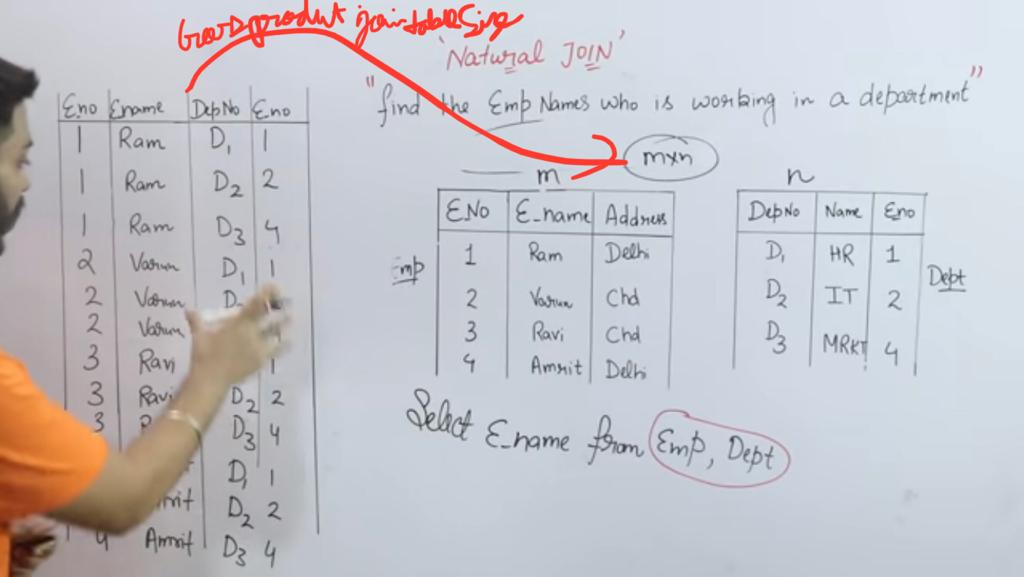 Cross product join table Size
'Natural JOIN'
"find the Emp Names who is working in a department"
m×n
E.no Ename DepNo E.no
1 Ram D1 1
1 Ram D2 2
1 Ram D3 4
2 Varun D1 1
2 Varun
2 Varun
3 Ravi 1
3 Ravi D2 2
3 D3 4
D1 1
D2 2
4 Amrit D3 4
m
Emp
E.No E_name Address
1 Ram Delhi
2 Varun Chd
3 Ravi Chd
4 Amrit Delhi
n
DepNo Name E.no
D1 HR 1
D2 IT 2
D3 MRKT 4
Dept
Select E_name from Emp, Dept